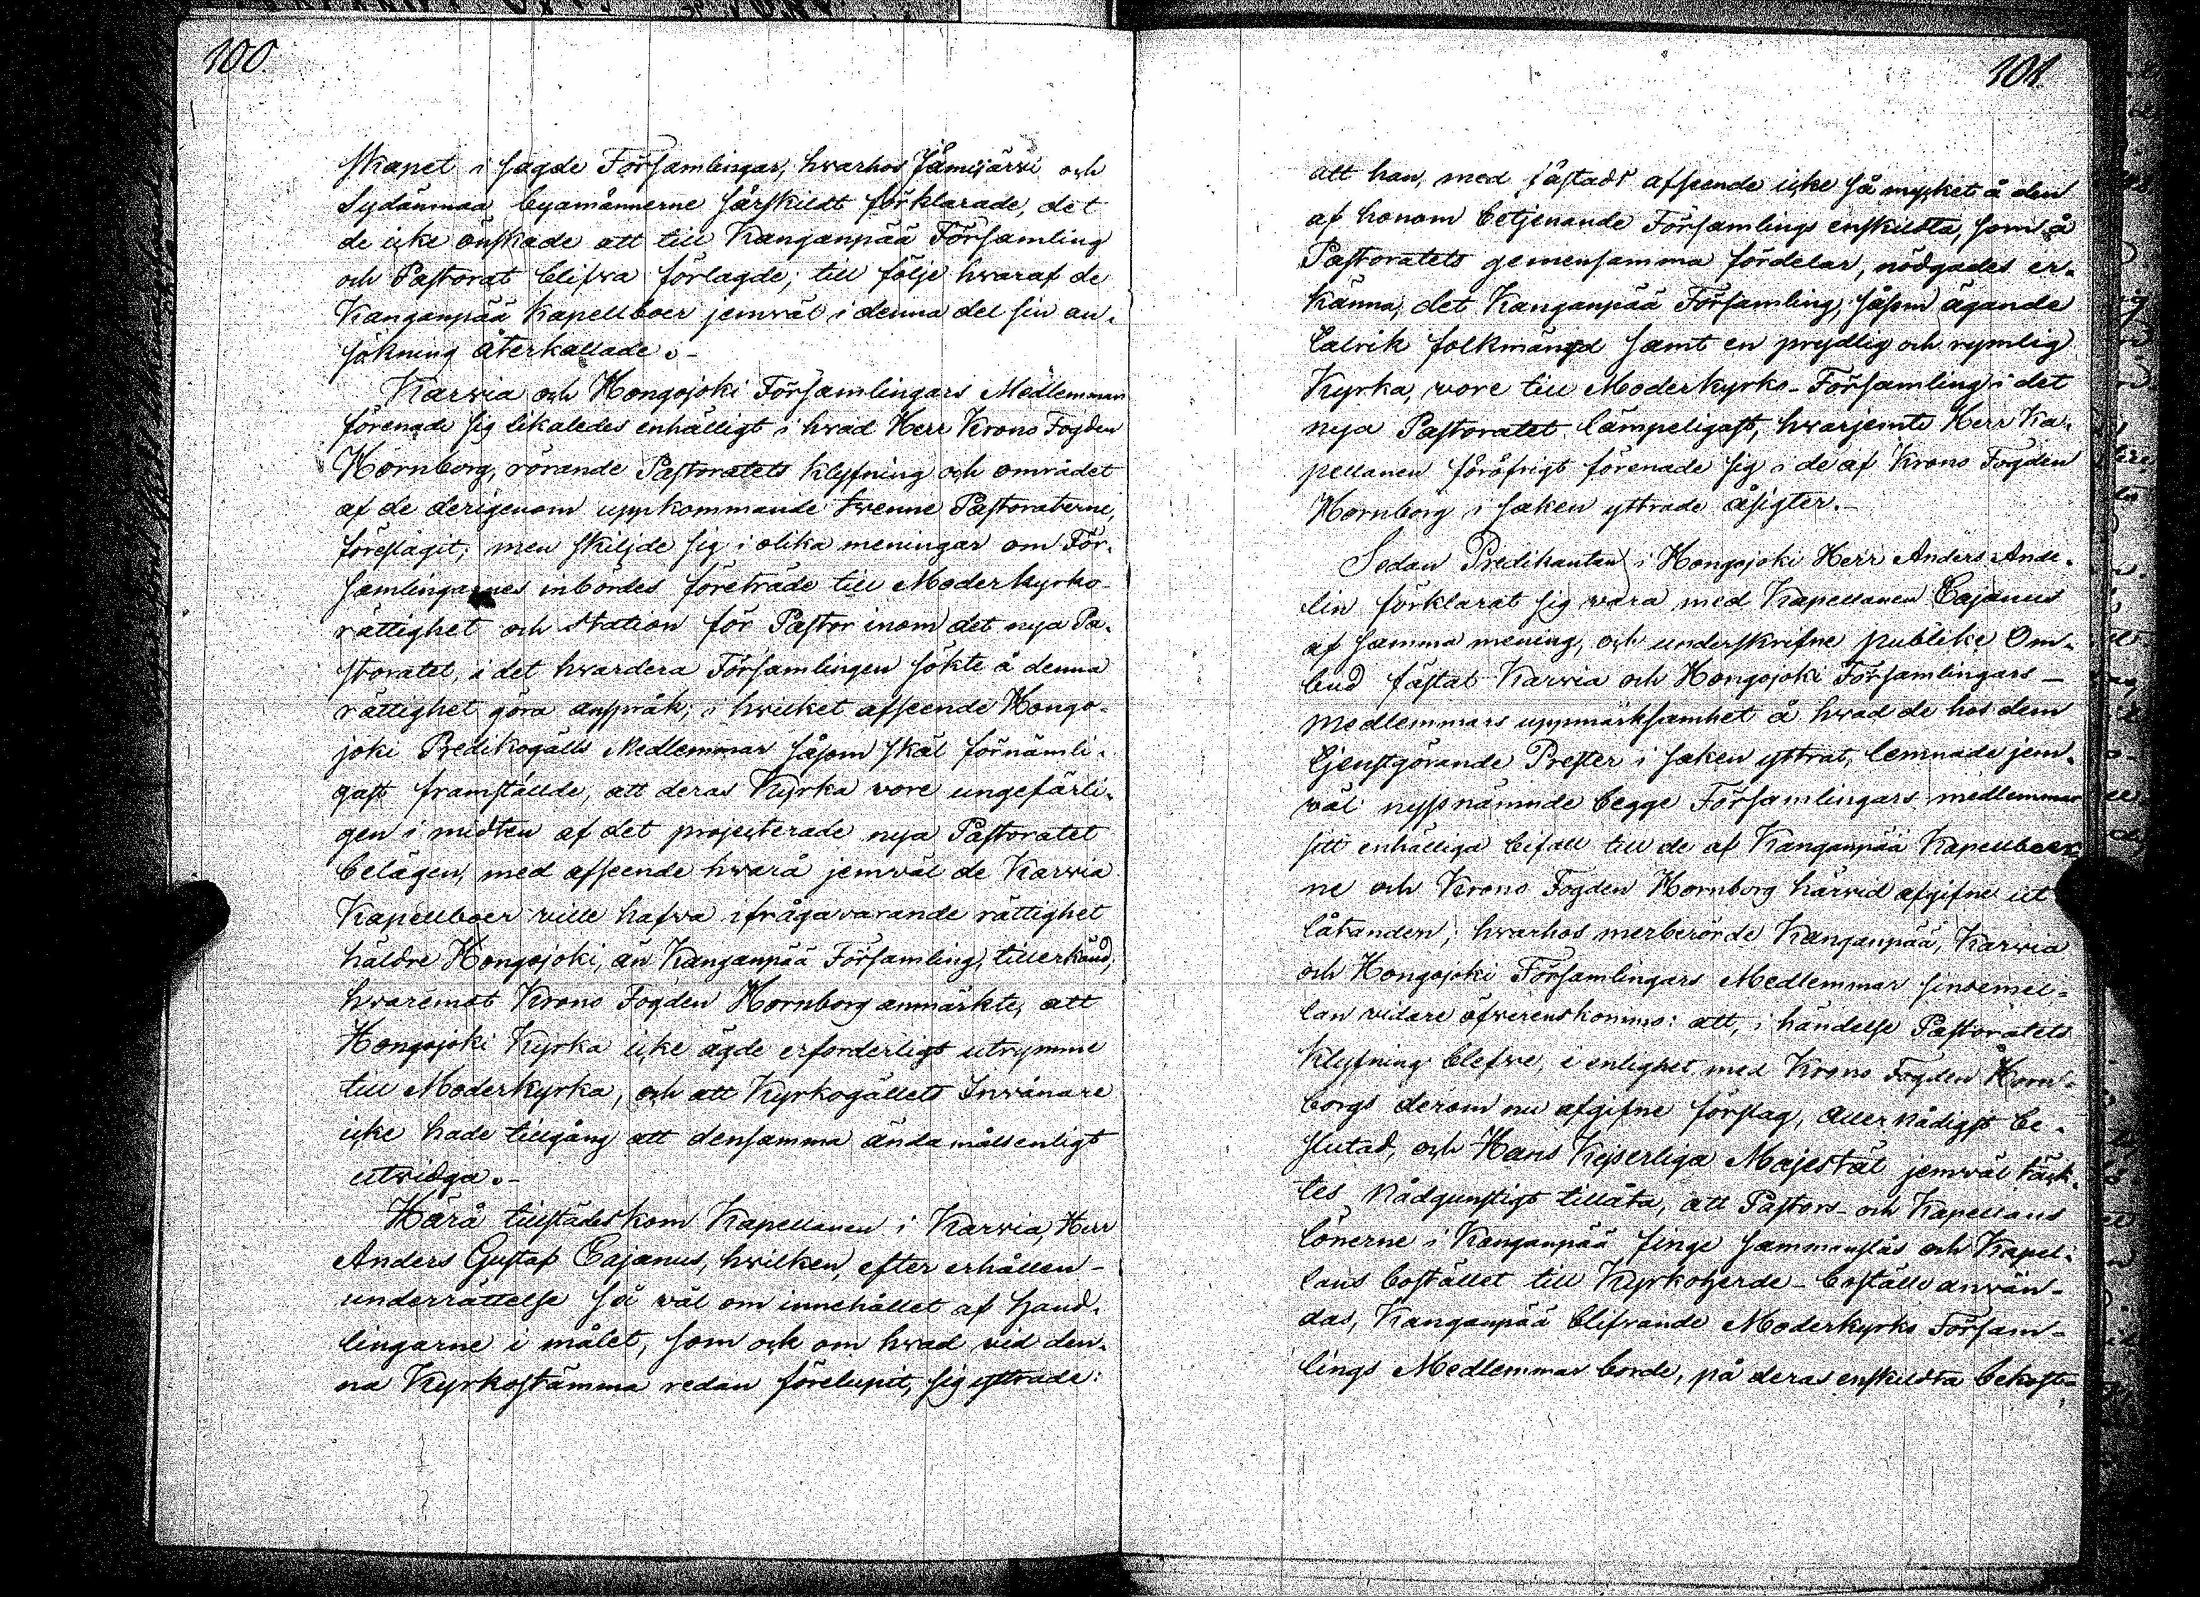 100.
skapet i sagde Församlingar, hvarhos Jämijärvi och
Sydänmaa byamännerne särskildt förklarade, det
de icke önskade att till Kanganpää Församling
och Pastorat blifva förlagde; till följe hvaraf de
Kanganpää Kapellboer jemväl i denna del sin an-
sökning återkallade.-
Karvia och Hongojoki Församlingars Medlemmar
förenade sig likaledes enhälligt i hvad Herr Krono Fogden
Hornborg, rörande Pastoratets klyfning och området
af de derigenom uppkommande tvenne Pastoraterne,
föreslagit; men skiljde sig i olika meningar om För-
samlingarnes inbördes företräde till Moderkyrko-
rättighet och station för Pastor inom det nya Pa-
storatet, i det hvardera Församlingen sökte å denna
rättighet göra anspråk; i hvilket afseende Hongo-
joki Predikogälls Medlemmar såsom skäl förnämli-
gast framställde, att deras Kyrka vore ungefärli-
gen i midten af det projecterade nya Pastoratet
belägen, med afseende hvarå jemväl de Karvia
Kapellboer ville hafva ifrågavarande rättighet
häldre Hongojoki, än Kanganpää Församling, tillerkänd,
hvaremot Krono Fogden Hornborg anmärkte, att
Hongojoki Kyrka icke ägde erforderligt utrymme
till Moderkyrka, och att Kyrkogällets Invånare
icke hade tillgång att densamma ändamålsenligt
utvidga.-
Härå tillstädeskom Kapellanen i Karvia, Herr
Anders Gustaf Cajanus, hvilken, efter erhållen-
underrättelse så väl om innehållet af Hand-
lingarne i målet, som och om hvad vid den-
na Kyrkostämma redan förelupit, sig yttrade:
101.
att han, med fästadt afseende icke så mycket å den
af honom betjenande Församlings enskildta, som å
Pastoratets gemensamma fördelar, nödgades er-
känna, det Kanganpää Församling, såsom ägande
talrik folkmängd samt en prydlig och rymlig
Kyrka, vore till Moderkyrko-Församling i det
nya Pastoratet lämpeligast, hvarjemte Herr Ka-
pellanen föröfrigt förenade sig i de af Krono Fogden
Hornborg i saken yttrade åsigter.-
Sedan Predikanten i Hongojoki Herr Anders Ande-
lin förklarat sig vara med Kapellanen Cajanus
af samma mening, och underskrifne publike Om-
bud fästat Karvia och Hongojoki Församlingars-
Medlemmars uppmärksamhet å hvad de hos dem
tjenstgörande Prester i saken yttrat, lemnade jem-
väl nyssnämnde begge Församlingars medlemmar
sitt enhälliga bifall till de af Kanganpää Kapellboer
ne och Krono Fogden Hornborg härvid afgifne ut
låtanden; hvarhos merberörde Kanganpää, Karvia
och Hongojoki Församlingars Medlemmar sinsemel-
lan vidare öfverenskommo: att, i händelse Pastoratets
klyfning blefve, i enlighet med Krono Fogden Horn-
borgs derom nu afgifne förslag, Allernådigst be-
slutad, och Hans Kejserliga Majestät jemväl täck-
tes Nådgunstigt tillåta, att Pastors- och Kapellans
lönerne i Kanganpää finge sammanslås och Kapel-
lans bostället till Kyrkoherde-boställe använ-
das, Kanganpää blifvande Moderkyrko Försam-
lings Medlemmar borde, på deras enskildta bekost-